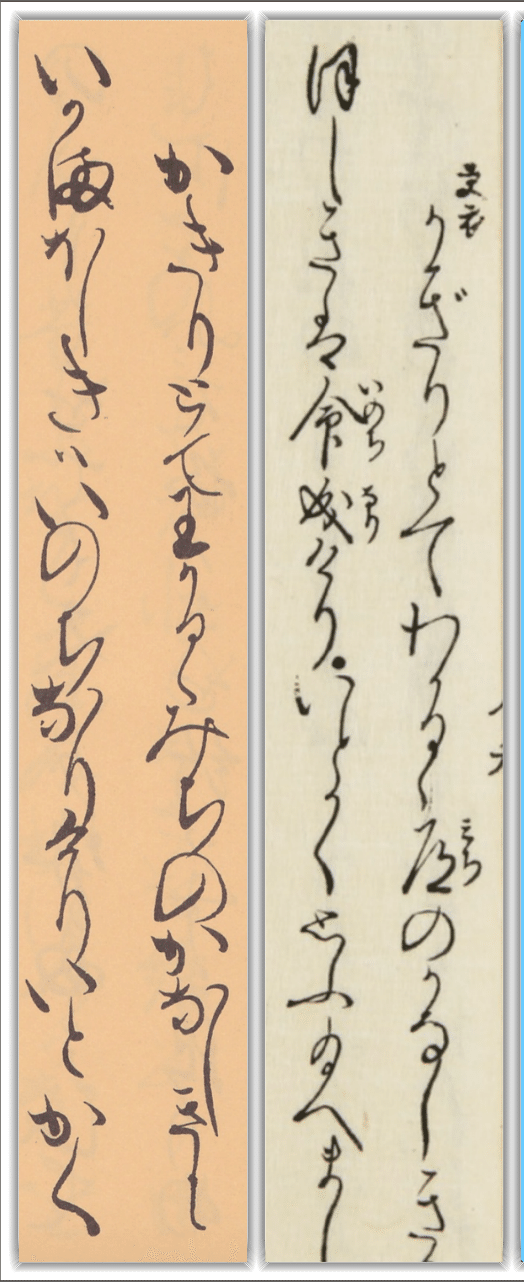 更衣
かぎりとてわかるゝ道のかなしき
みち
ほしきは命成けり。いとかく思ふ給へまし
いのち
なり
かきりとてわかるゝみちのかなしきに
いかまほしきはいのちなりけりいとかく